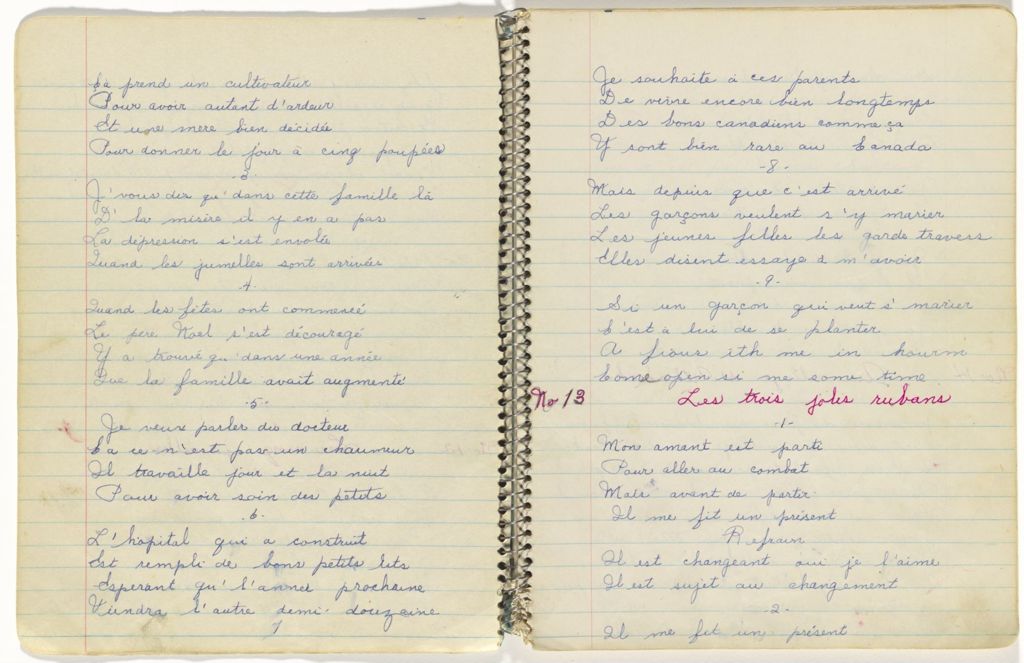 Ça prend un cultivateur
Pour avoir autant d'ardeur
Et une mere bien décidée
Pour donner le jour à cinq poupées
-3-
J'vous dis qu'dans cette famille là
D'la misère il y en a pas
La dépression s'est envolée
Quand les jumelles sont arrivées
-4-
Quand les fêtes ont commencé
Le père Noel s'est découragé
Y a trouvé qu'dans une année
Que la famille avait augmenté
-5-
Je veux parler du docteur
Ça ce n'est pas un chaumeur
Il travaille jour et la nuit
Pour avoir soin des petits
-6-
L'hôpital qui a construit
Est rempli de bons petits lits
Esperant qu'l'année prochaine
Viendra l'autre demi-douzaine
7
Je souhaite à ces parents
De vivre encore bien longtemps
Des bons canadiens comme ça
Y sont bien rare au Canada
-8-
Mais depuis que c'est arrivé
Les garçons veulent s'y marier
Les jeunes filles les garde travers
Elles disent essaye à m'avoir
-9-
Si un garçon qui veut s'marier
C'est à lui de se planter
A fiour ith me in hourm
Come open si me some time
No 13 Les trois jolis rubans
-1-
Mon amant est parti
Pour aller au combat
Mais avant de partir
Il me fit un présent
Refrain
Il est changeant oui je l'aime
Il est sujet au changement
-2-
Il me fit un présent